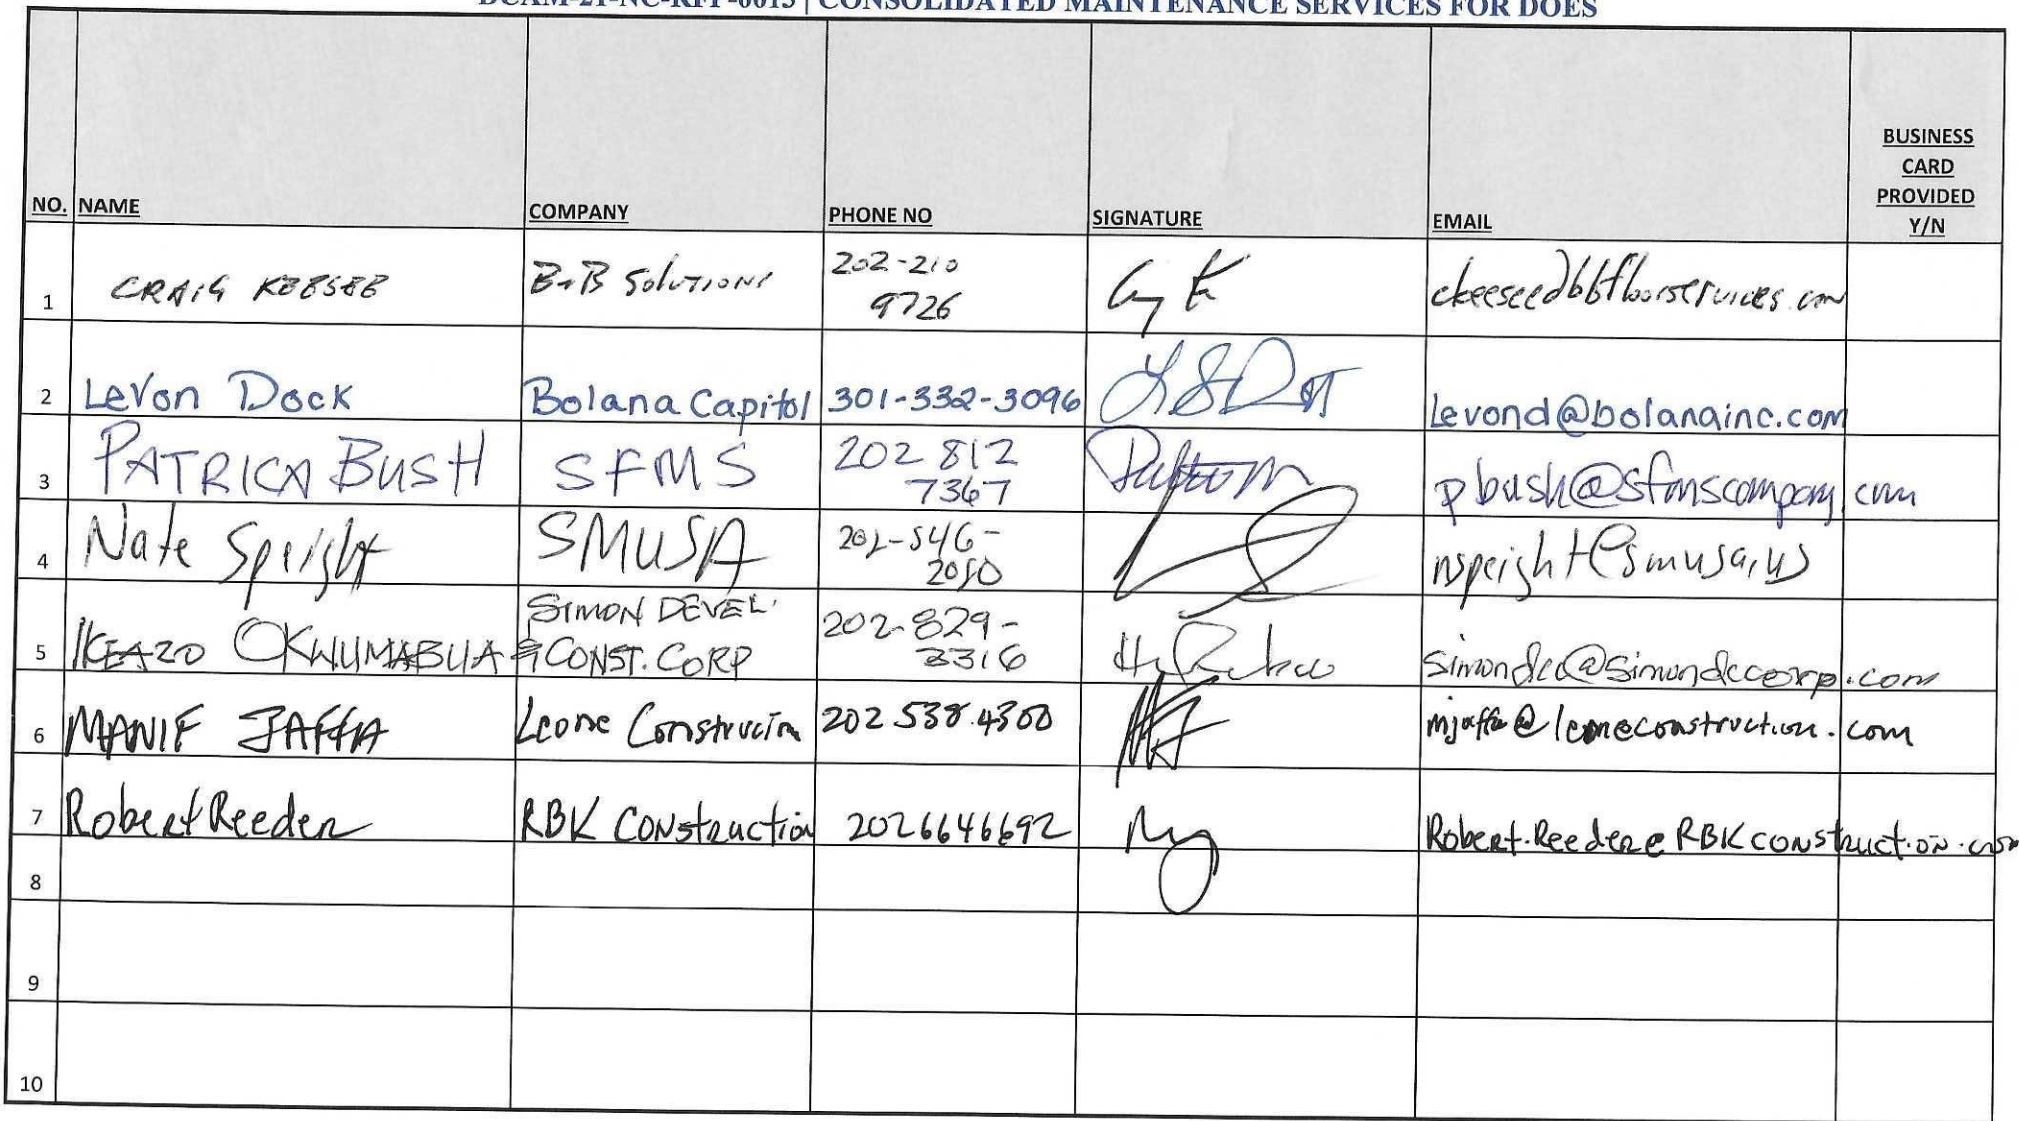 DCAM-21-NC-RFP-0013 | CONSOLIDATED MAINTENANCE SERVICES FOR DOES
NO. NAME COMPANY PHONE NO SIGNATURE EMAIL BUSINESS CARD PROVIDED Y/N
1 CRAIG KEESEE B&B Solutions 202-210
9726
2 Levon Dock Bolana Capitol 301-332-3096 levond@bolanainc.com
3 PATRICA BUSH SFMS 202 812
7367 pbush@sfmscompany.com
4 Nate Speight SMUSA 202-546-
2050 nspeight@smusa.us
5 IKEAZO OKWUMABUA SIMON DEVEL.
& CONST. CORP 202-829-
3316 simondcc@simondccorp.com
6 MANIF JAFFA Leone Construction 202 538.4300 mjaffa@leoneconstruction.com
7 Robert Reeder RBK Construction 2026646692 Robert.Reeder@RBKconstruction.com
8
9
10